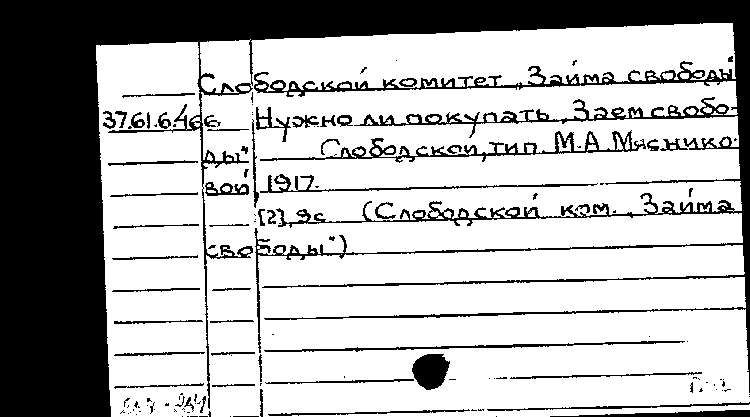 Слободской комитет „Займа свободы"
37.61.6.466 Нужно ли покупать „Заем свобо-
ды". Слободской, тип. М.А. Мяснико-
вой, 1917.
[2], 9с (Слободской ком. „Займа
свободы")